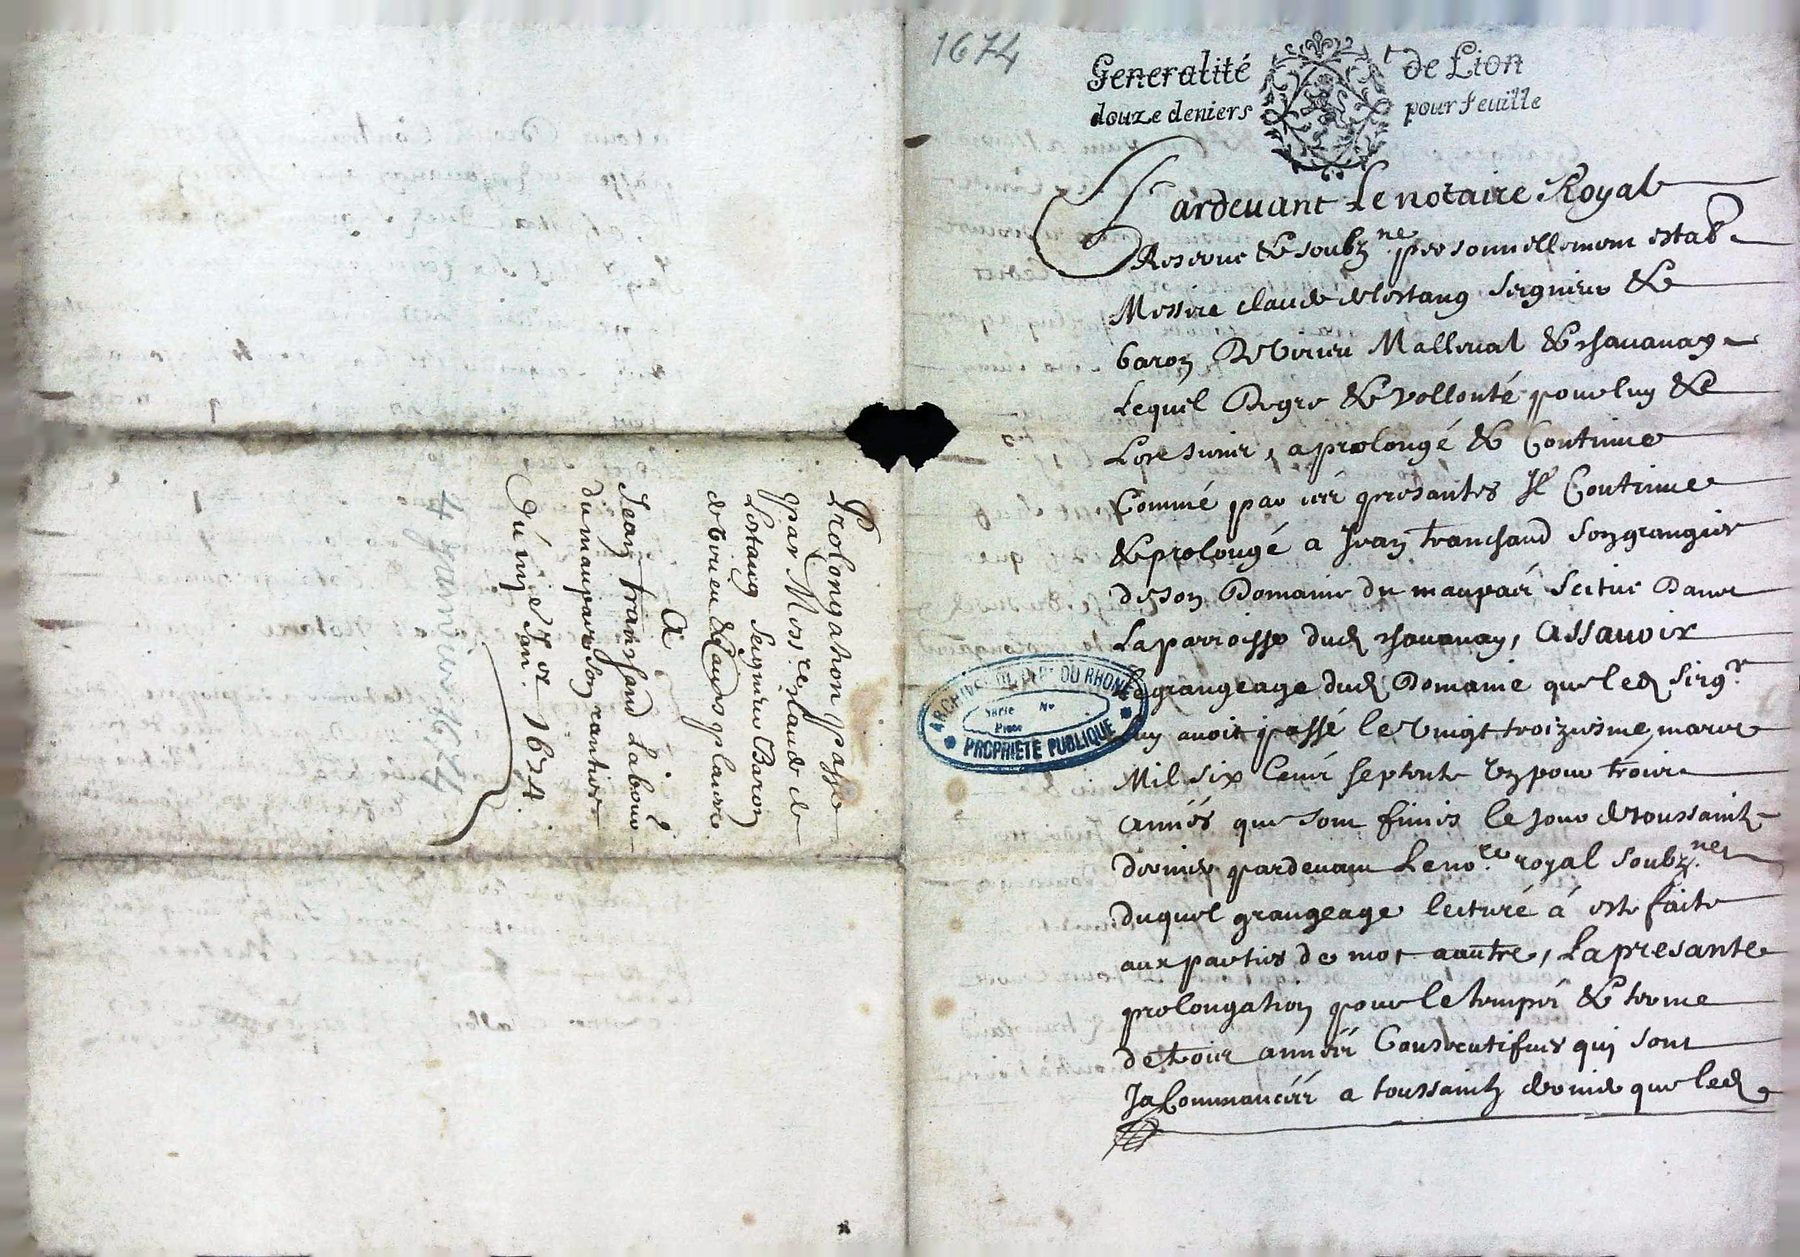 Prolongation passe
par Mess.re Claude de
Lestang Seigneur Baron
de Virieu & autres places
A
Jean Tranchand Laboure.r
du maupas son rantier
Du iiije Jan.er 1674.
4 janvier 1674
1674
Generalité de Lion
douze deniers pour feuille
Pardevant Le notaire Royal
Reserve & soubz.ne personnellement estab
Messire claude de Lestang seigneur &
baron De Virieu Malleval & chavanay
Lequel De gre & vollonté pour luy &
Les siens, a prolongé & Continue
Comme par ces presantes Il Continue
& prolongé a Jean Tranchand son grangier
de son Domaine du maupas scitué Dans
La parroisse dud chavanay, Assavoir
Le grangeage dud Domaine que led seig.r
luy avoit passé le vingt troiziesme mars
Mil six Cens septente un pour trois
années que sont finies le jour de toussainctz
dernier pardevant Le no.re royal soubz.ne
duquel grangeage lecture á esté faite
aux parties de mot a autre, La presante
prolongation pour le temps & terme
de trois années Consecutifves qui sont
Ja Commancées a toussainctz dernier que led
ARCHIVES DU DEPT DU RHONE
Serie No
Piece
PROPRIETE PUBLIQUE